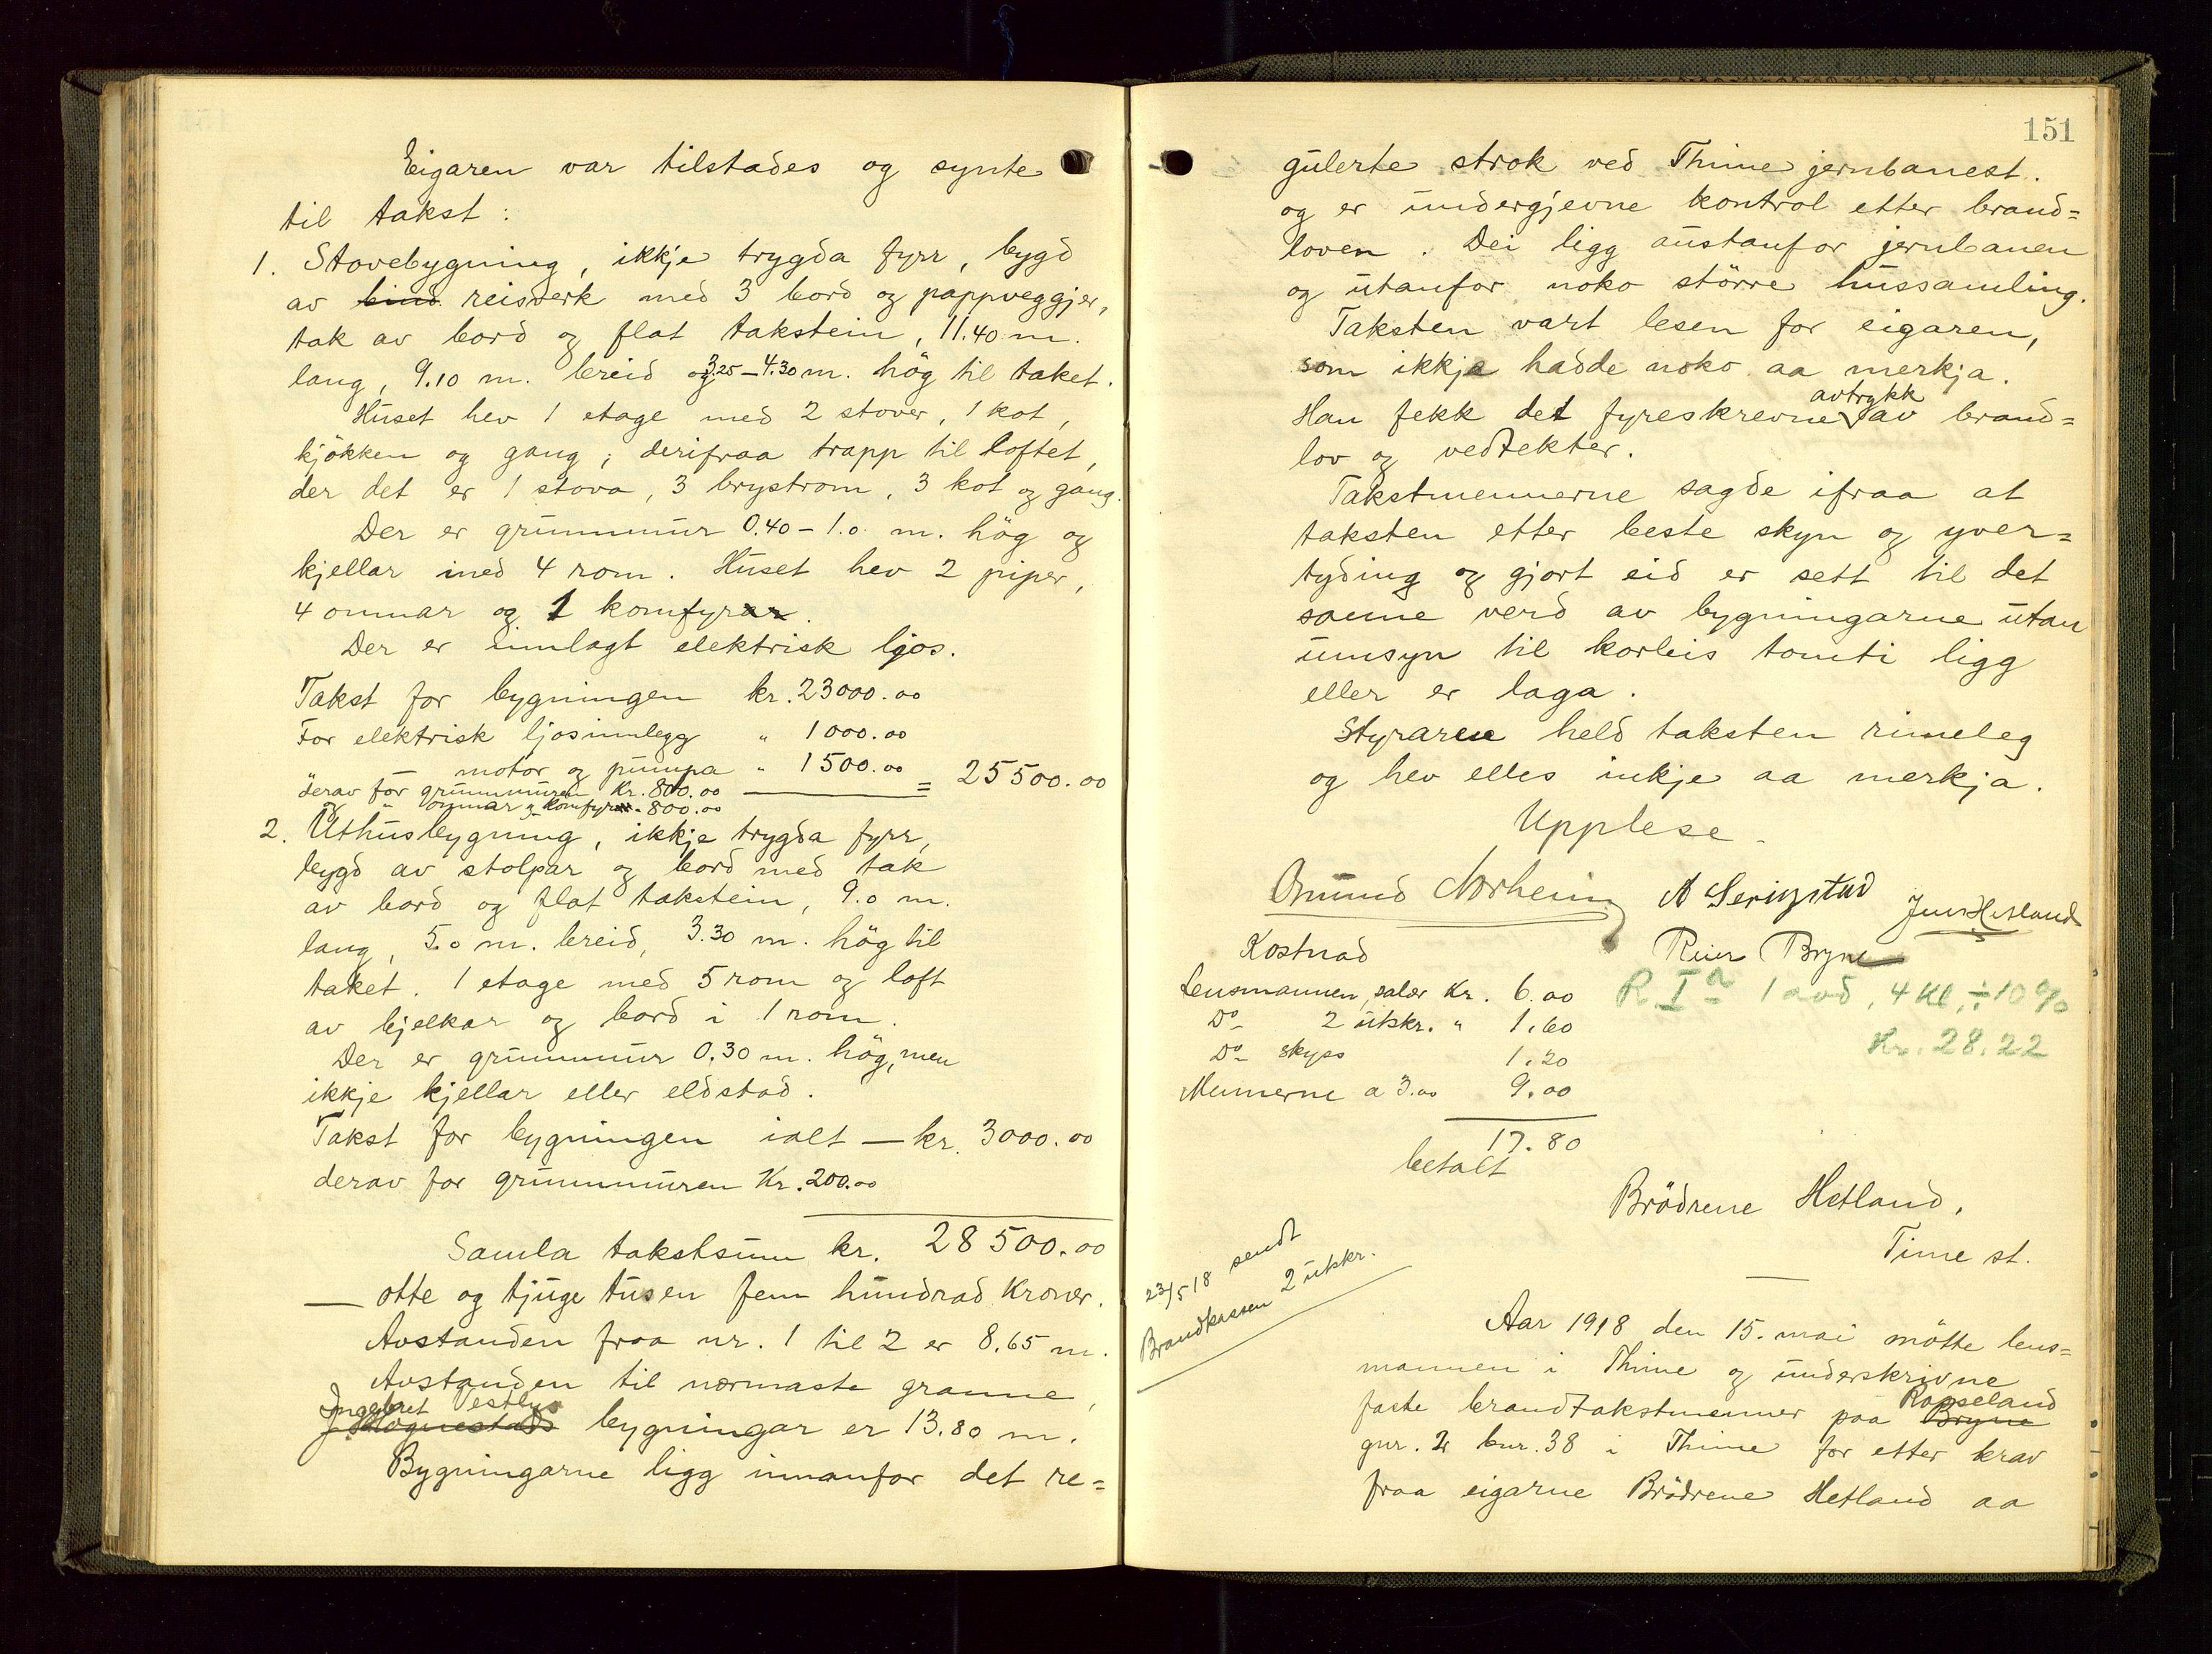 Eigaren var tilstades og synte
til takst:
1. Stovebygning, ikkje trygda fyrr, bygd
av bind reisverk med 3 bord og pappveggjer,
tak av bord og flat takstein, 11.40 m.
lang, 9.10 m. breid og 3.25-4.30 m. høg til taket.
Huset hev 1 etage med 2 stover, 1 kot,
kjökken og gang; derifraa trapp til loftet,
der det er 1 stova, 3 brystrom, 3 kot og gang.
Der er grunnmur 0.40-1.0 m. hög og
kjellar med 4 rom. Huset hev 2 piper,
4 omnar og 1 komfyrar.
Der er innlagt elektrisk ljos.
Takst for bygningen kr. 23000.00
For elektrisk ljosinnlegg " 1000.00
motor og pumpa " 1500.00 = 25500.00
derav for grunnmuren Kr. 800.00
og " omnar og komfyr - 800.00
2. Uthusbygning, ikkje trygda fyrr,
bygd av stolpar og bord med tak
av bord og flat takstein, 9.0 m.
lang, 5.0 m. breid, 3.30 m. hög til
taket. 1 etage med 5 rom og loft
av bjelkar og bord i 1 rom.
Der er grunnmur 0.30 m. hög, men
ikkje kjellar eller eldstad.
Takst for bygningen ialt — kr. 3000.00
derav for grunnmuren Kr. 200.00
Samla takstsum kr. 28500.00
— otte og tjuge tusen fem hundrad Kroner.
Avstanden fraa nr. 1 til 2 er 8.65 m.
Avstanden til nærmaste granne,
Ingebret Vestlys
J. Høgnestads bygningar er 13.80 m.
Bygningarne ligg innanfor det re=
151
gulerte strok ved Thime jernbanest.
og er undergjevne kontrol etter brand=
loven. Dei ligg austanfor jernbanen
og utanfor noko större hussamling.
Taksten vart lesen for eigaren,
som ikkje hadde noko aa merkja.
avtrykk
Han fekk det fyreskrevne av brand=
lov og vedtekter.
Takstmennerne sagde ifraa at
taksten etter beste skyn og yver=
tyding og gjort eid er sett til det
sanne verd av bygningarne utan
umsyn til korleis tomti ligg
eller er laga.
Styraren held taksten rimeleg
og hev elles inkje aa merkja.
Upplese.
Omund Norheim A Serigstad Jens Hetland
Kostnad Reier Bryne
Lensmannen, salær Kr. 6.00 R. Ia 1 avd, 4 Kl, ÷ 10%
Do 2 utskr. " 1.60 Kr. 28.22
Do skyss 1.20
Mennerne a 3.00 9.00
17.80
betalt
Brödrene Hetland,
Time st.
23/5 18 sendt
Brandkassen 2 utskr.
Aar 1918 den 15. mai mötte lens=
mannen i Thime og underskrivne
faste brandtakstmenner paa Bryne Rosseland
gnr. 2 bnr. 38 i Thime for etter krav
fraa eigarne Brödrene Hetland aa